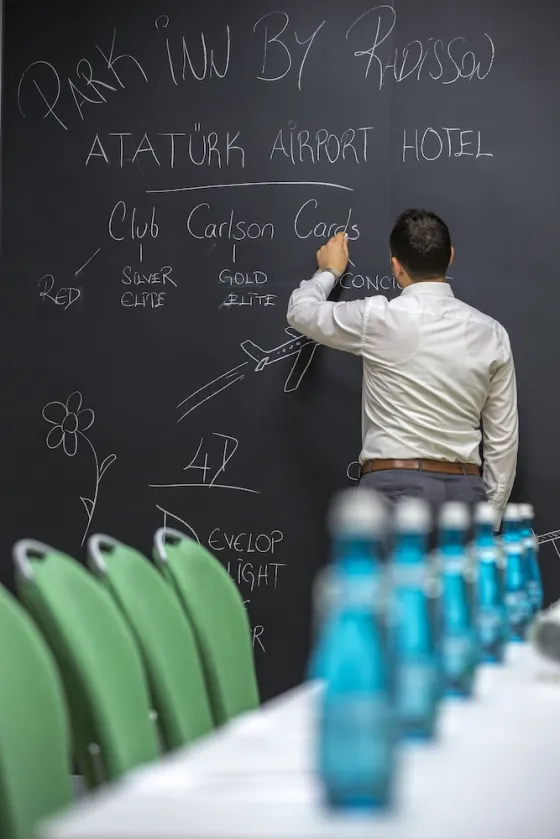 PARK iNN BY RADISSON
ATATÜRK AiRPORT HOTEL
Club Carlson Cards
RED
SiLVER ELiTE
GOLD ELiTE
CONCi
4D
EVELOP
LIGHT
R